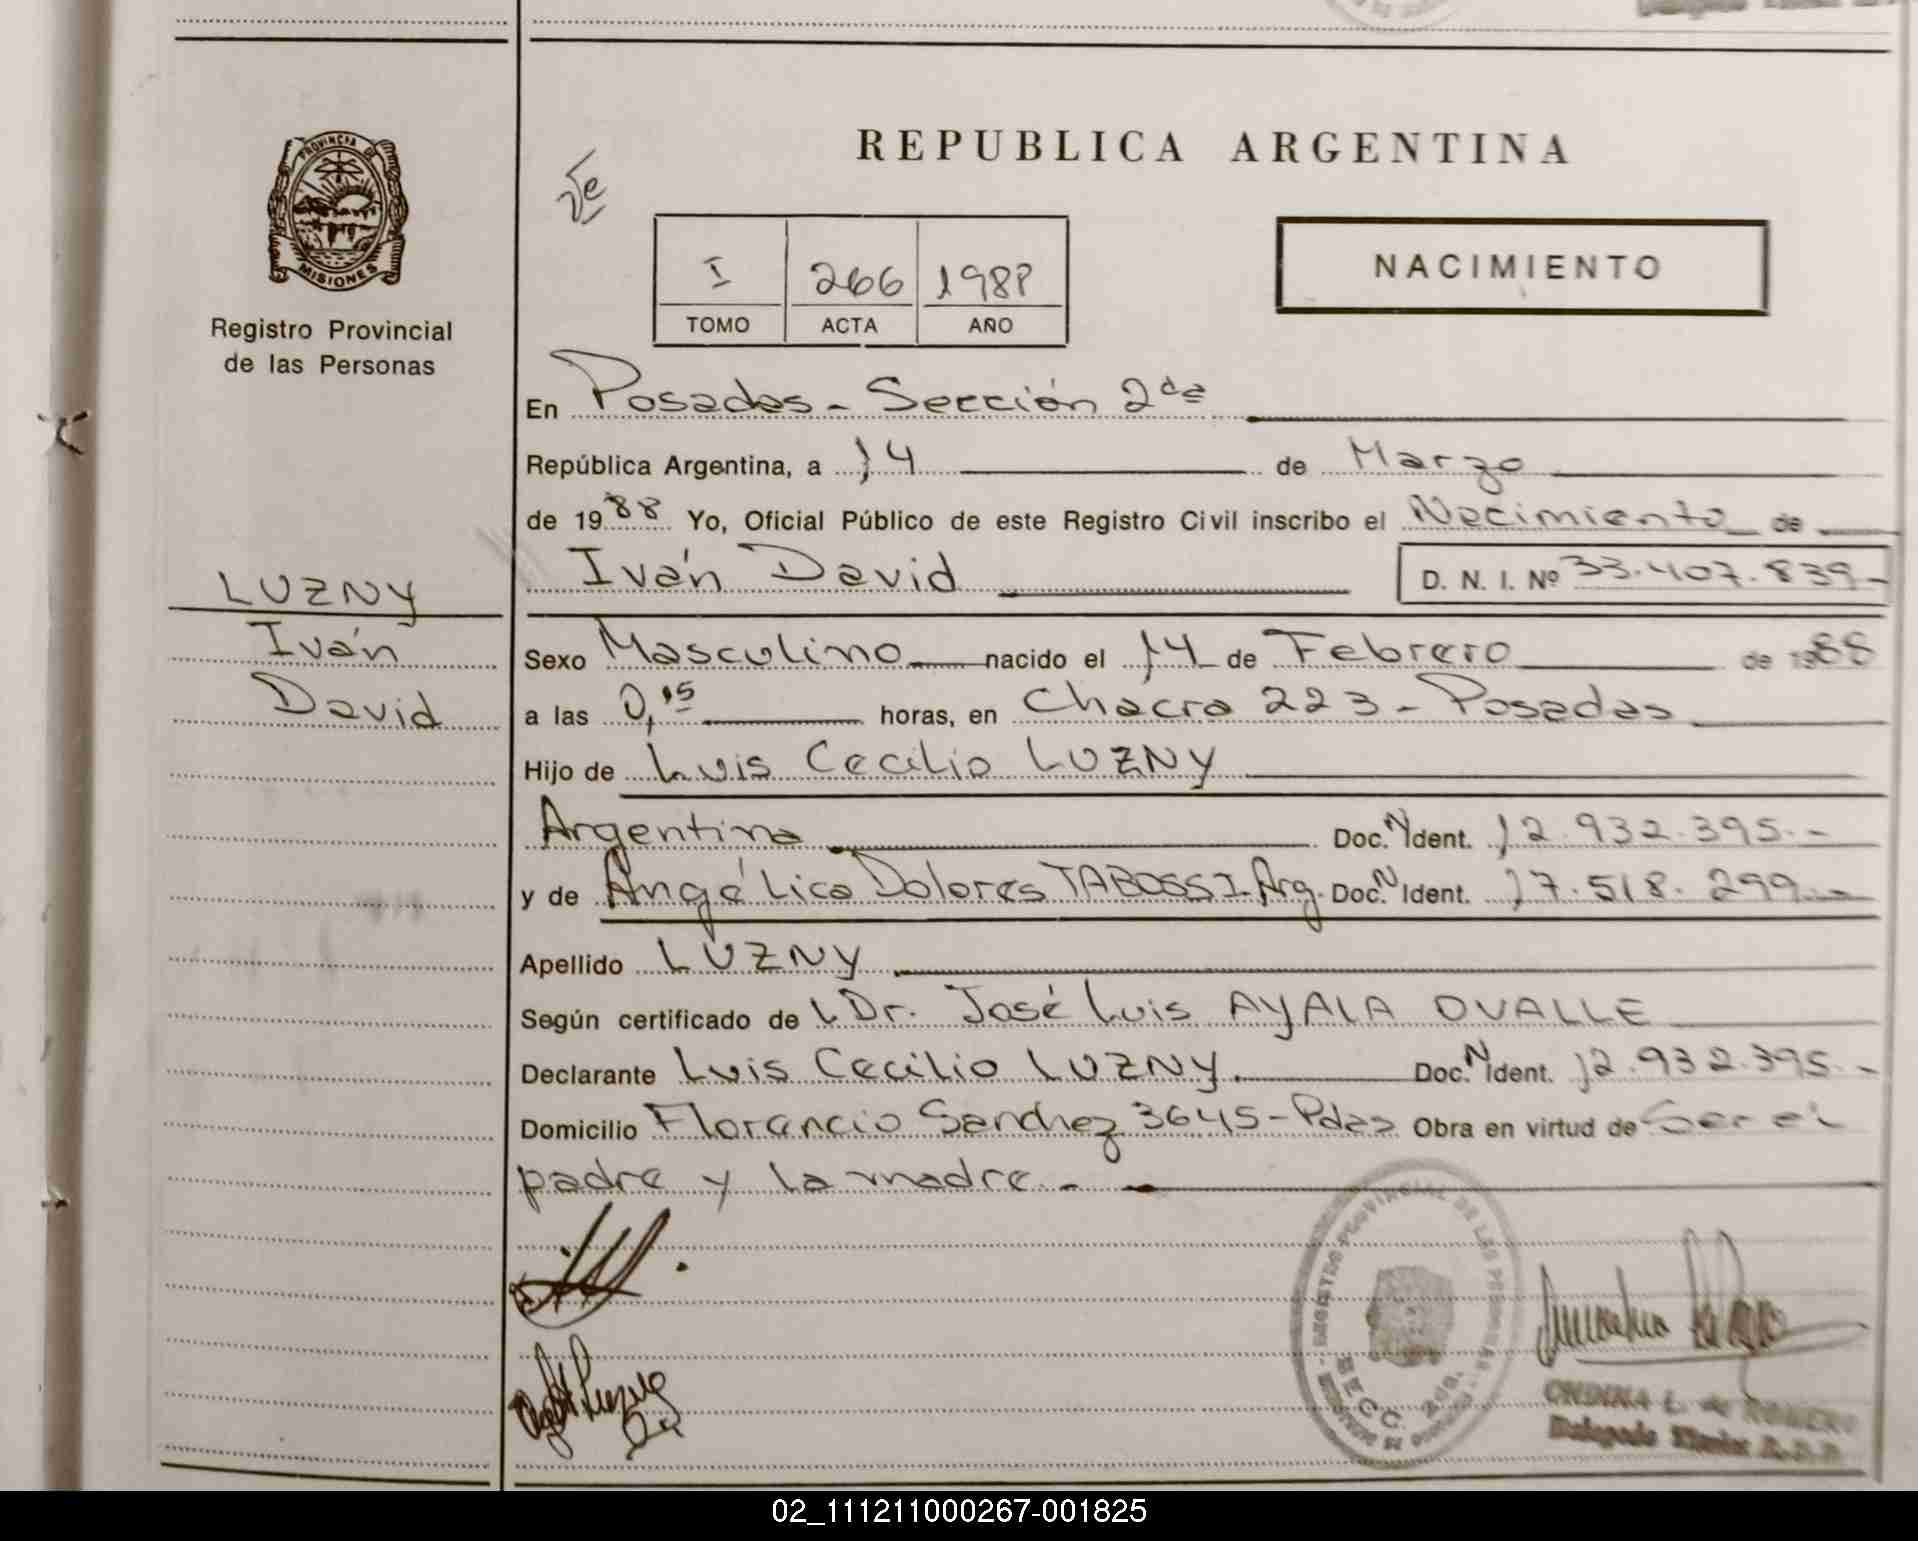 REPUBLICA ARGENTINA
PROVINCIA DE
MISIONES
Registro Provincial
de las Personas
I 266 1988
TOMO ACTA AÑO
NACIMIENTO
En Posadas - Sección 2da
República Argentina, a 14 de Marzo
de 1988 Yo, Oficial Público de este Registro Civil inscribo el Nacimiento de
Iván David D. N. I. Nº 33.407.839-
LUZNY
Iván
David
Sexo Masculino nacido el 14 de Febrero de 1988
a las 0,15 horas, en Chacra 223 - Posadas
Hijo de Luis Cecilio LUZNY
Argentina Doc. N Ident. 12.932.395.-
y de Angélica Dolores TABOSSI-Arg. Doc. N Ident. 17.518.299.-
Apellido LUZNY
Según certificado de Dr. José Luis AYALA OVALLE
Declarante Luis Cecilio LUZNY. Doc. N Ident. 12.932.395.-
Domicilio Florencio Sanchez 3645-Pdas Obra en virtud de Ser el
padre y la madre.-
REGISTRO PROVINCIAL DE LAS PERSONAS
SECC. 2da.
ONDINA L. de ROMERO
02_111211000267-001825